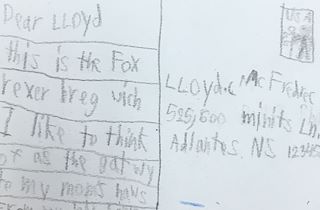 Dear LLOYD
this is the Fox
rexer breg wich
I like to think
of as the gatwy
to my moms haws
USA
LLOYD.C McFedree
525,600 minits Ln.
Adlantes, NS 12345